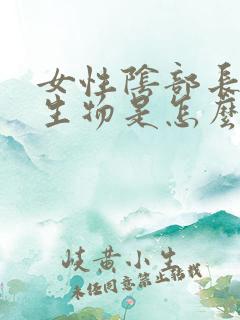 女性陰部長
生物是怎麼
岐黄小生
未经同意禁止转载